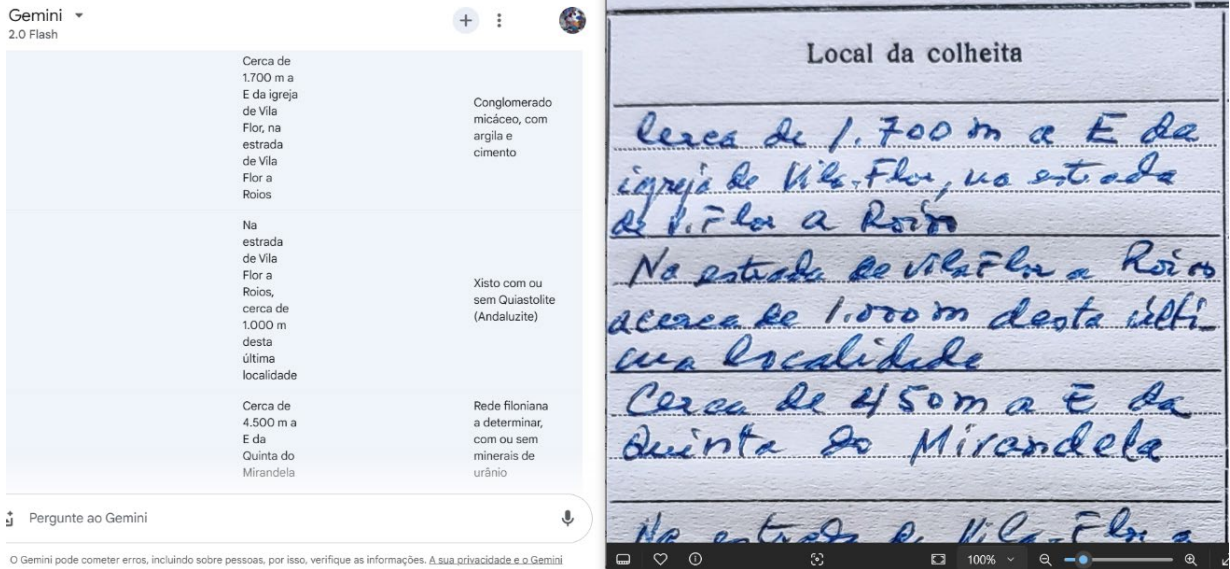 Gemini
2.0 Flash
Cerca de
1.700 m a
E da igreja
de Vila
Flor, na
estrada
de Vila
Flor a
Roios
Conglomerado
micáceo, com
argila e
cimento
Na
estrada
de Vila
Flor a
Roios,
cerca de
1.000 m
desta
última
localidade
Xisto com ou
sem Quiastolite
(Andaluzite)
Cerca de
4.500 m a
E da
Quinta do
Mirandela
Rede filoniana
a determinar,
com ou sem
minerais de
urânio
Pergunte ao Gemini
O Gemini pode cometer erros, incluindo sobre pessoas, por isso, verifique as informações. A sua privacidade e o Gemini
Local da colheita
Cerca de 1.700 m a E da
igreja de Vila-Flor, na estrada
de V. Flor a Roios
Na estrada de Vila Flor a Roios
acerca de 1.000 m desta últi-
ma localidade
Cerca de 450 m a E da
Quinta do Mirandela
Na estrada de Vila-Flor a
100%